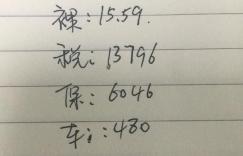 裸：15.59.
税：13796
保：6046
车：：480